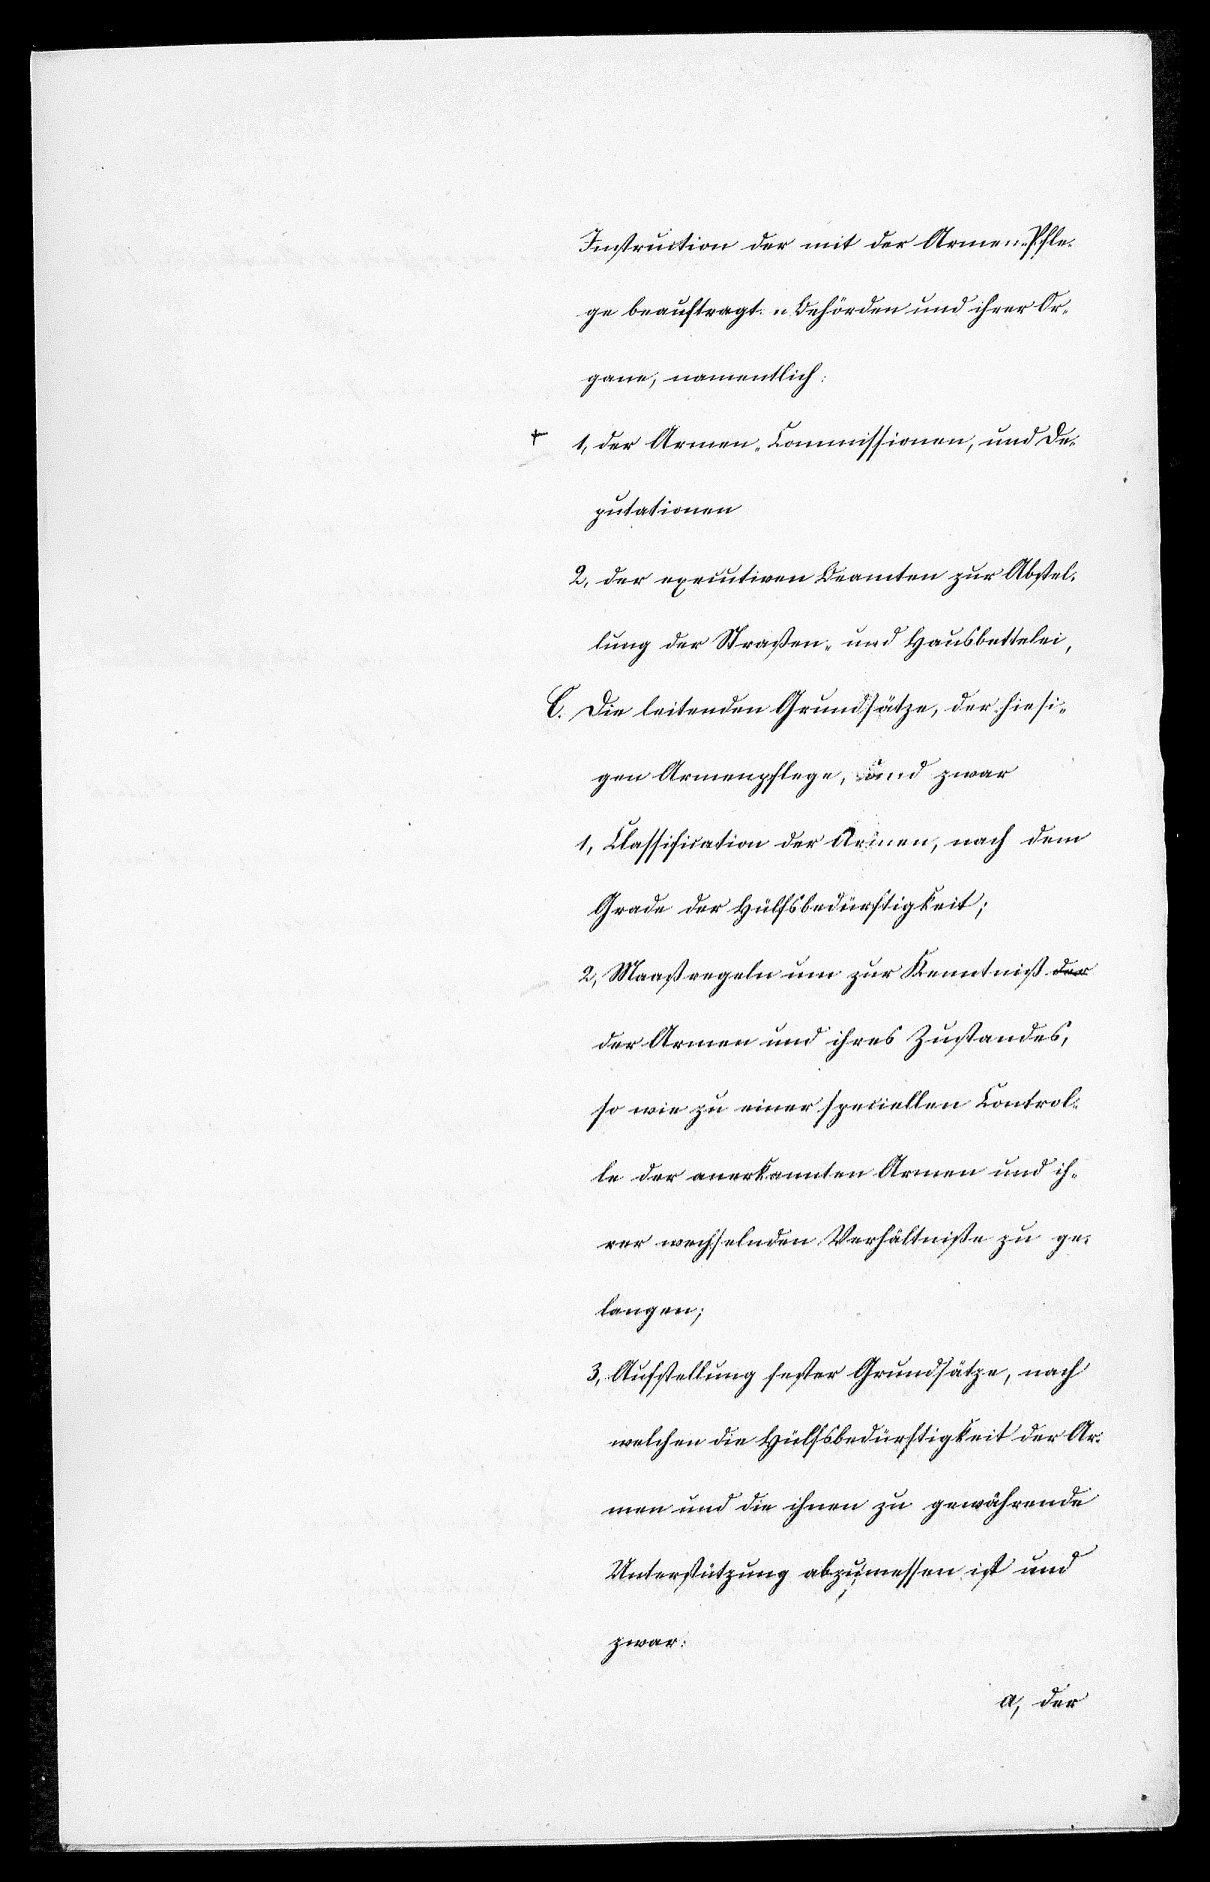 Instruction der mit der Armen-Pfle-
ge beauftragten Behörden und ihrer Or-
gane, namentlich:
+ 1, der Armen-Commissionen, und De-
putationen
2, der executiven Beamten zur Abstel-
lung der Straßen- und Hausbettelei,
C. Die leitenden Grundsätze, der hiesi-
gen Armenpflege, und zwar
1, Classification der Armen, nach dem
Grade der Hülfsbedürftigkeit;
2, Maaßregeln um zur Kenntniß der
der Armen und ihres Zustandes,
so wie zu einer speciellen Control-
le der anerkannten Armen und ih-
rer wechselnden Verhältniße zu ge-
langen;
3, Aufstellung fester Grundsätze, nach
welchen die Hülfsbedürftigkeit der Ar-
men und die ihnen zu gewährende
Unterstützung abzumessen ist und
zwar:
a, der